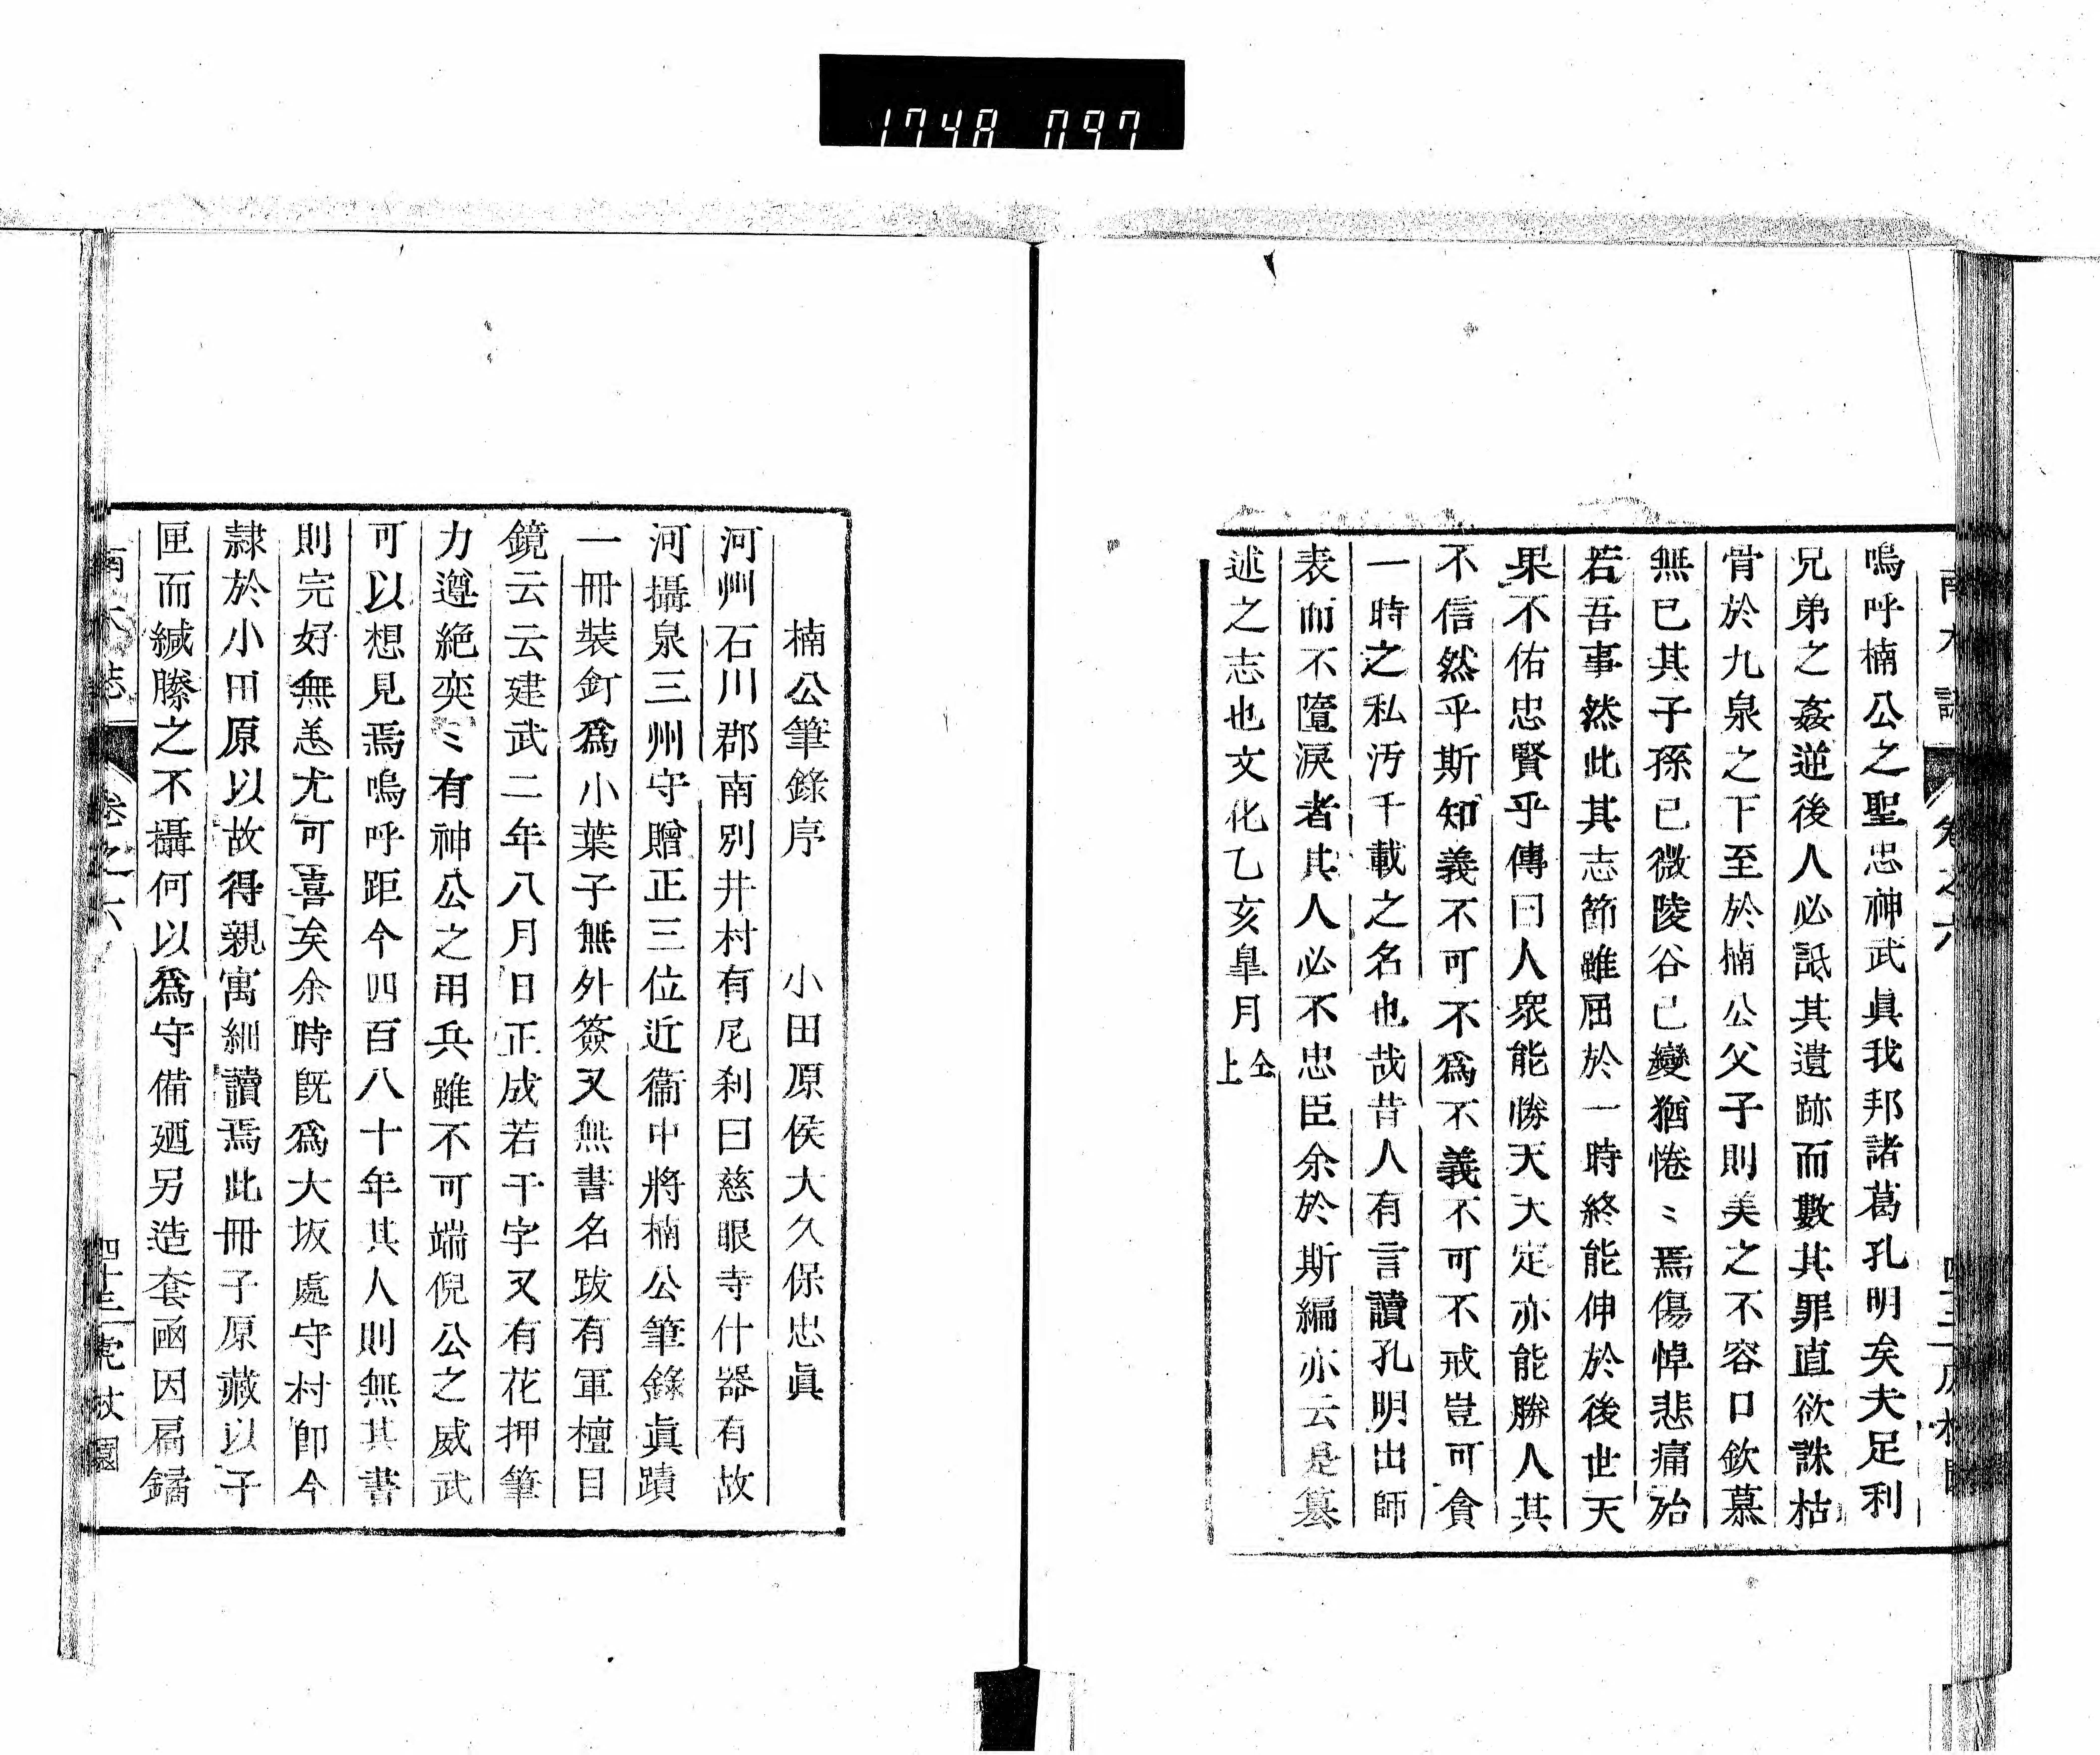 1748 097
嗚呼楠公之聖忠神武眞我邦諸葛孔明矣夫足利
兄弟之姦逆後人必詆其遺跡而數其罪直欲誅枯
骨於九泉之下至於楠公父子則美之不容口欽慕
無已其子孫已微陵谷已變猶惓〻焉傷悼悲痛殆
若吾事然此其志節雖屈於一時終能伸於後世天
果不佑忠賢乎傳曰人衆能勝天天定亦能勝人其
不信然乎斯知義不可不爲不義不可不戒豈可貪
一時之私汚千載之名也哉昔人有言讀孔明出師
表而不墮淚者其人必不忠臣余於斯編亦云是纂
述之志也文化乙亥皐月仝上
楠公筆錄序　小田原侯大久保忠眞
河州石川郡南別井村有尼刹曰慈眼寺什器有故
河攝泉三州守贈正三位近衞中將楠公筆錄眞蹟
一冊裝釘爲小葉子無外簽又無書名跋有軍檀目
鏡云云建武二年八月日正成若干字又有花押筆
力遵絶奕〻有神公之用兵雖不可端倪公之威武
可以想見焉嗚呼距今四百八十年其人則無其書
則完好無恙尤可喜矣余時既爲大坂處守村卽今
隷於小田原以故得親寓細讀焉此冊子原藏以子
匣而緘縢之不攝何以爲守備廼另造套凾因扃鐍
南木誌　卷之六　四十三　虎杖園